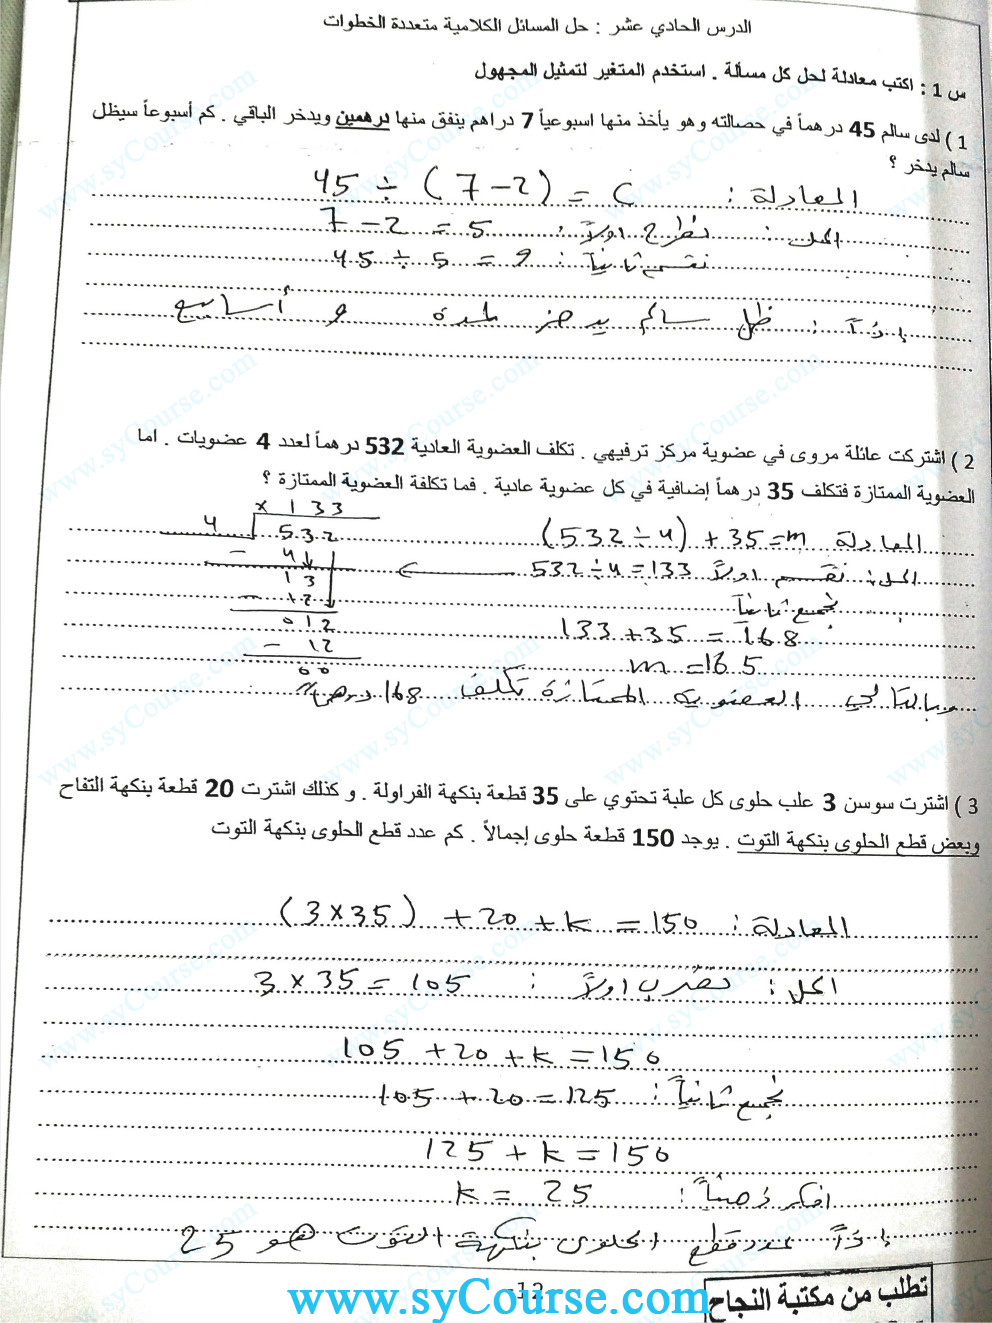 الدرس الحادي عشر : حل المسائل الكلامية متعددة الخطوات
س 1 : اكتب معادلة لحل كل مسألة . استخدم المتغير لتمثيل المجهول
1 ) لدى سالم 45 درهماً في حصالته و هو يأخذ منها اسبوعياً 7 دراهم ينفق منها درهمين ويدخر الباقي . كم أسبوعاً سيظل
سالم يدخر ؟
المعادلة : 45 ÷ (7 – 2) = C
الحل : نطرح اولاً : 7 – 2 = 5
نقسم ثانياً : 45 ÷ 5 = 9
إذاً : ظل سالم يدخر لمدة 9 أسابيع
2 ) اشتركت عائلة مروى في عضوية مركز ترفيهي . تكلف العضوية العادية 532 درهماً لعدد 4 عضويات . اما
العضوية الممتازة فتكلف 35 درهماً إضافية في كل عضوية عادية . فما تكلفة العضوية الممتازة ؟
المعادلة (532 ÷ 4) + 35 = m
الحل : نقسم اولاً 532 ÷ 4 = 133
نجمع ثانياً
133 + 35 = 168
m = 165
وبالتالي العضويه الممتازة تكلف 168 درهم
x 133
4 532
– 4
13
– 12
012
– 12
00
3 ) اشترت سوسن 3 علب حلوى كل علبة تحتوي على 35 قطعة بنكهة الفراولة . و كذلك اشترت 20 قطعة بنكهة التفاح
وبعض قطع الحلوى بنكهة التوت . يوجد 150 قطعة حلوى إجمالاً . كم عدد قطع الحلوى بنكهة التوت
المعادلة : (3 x 35) + 20 + k = 150
الحل : نضرب اولاً : 3 x 35 = 105
105 + 20 + k = 150
نجمع ثانياً : 105 + 20 = 125
125 + k = 150
افكر ذهنياً : k = 25
إذاً عدد قطع الحلوى بنكهة التوت هو 25
-12-
www.syCourse.com
تطلب من مكتبة النجاح